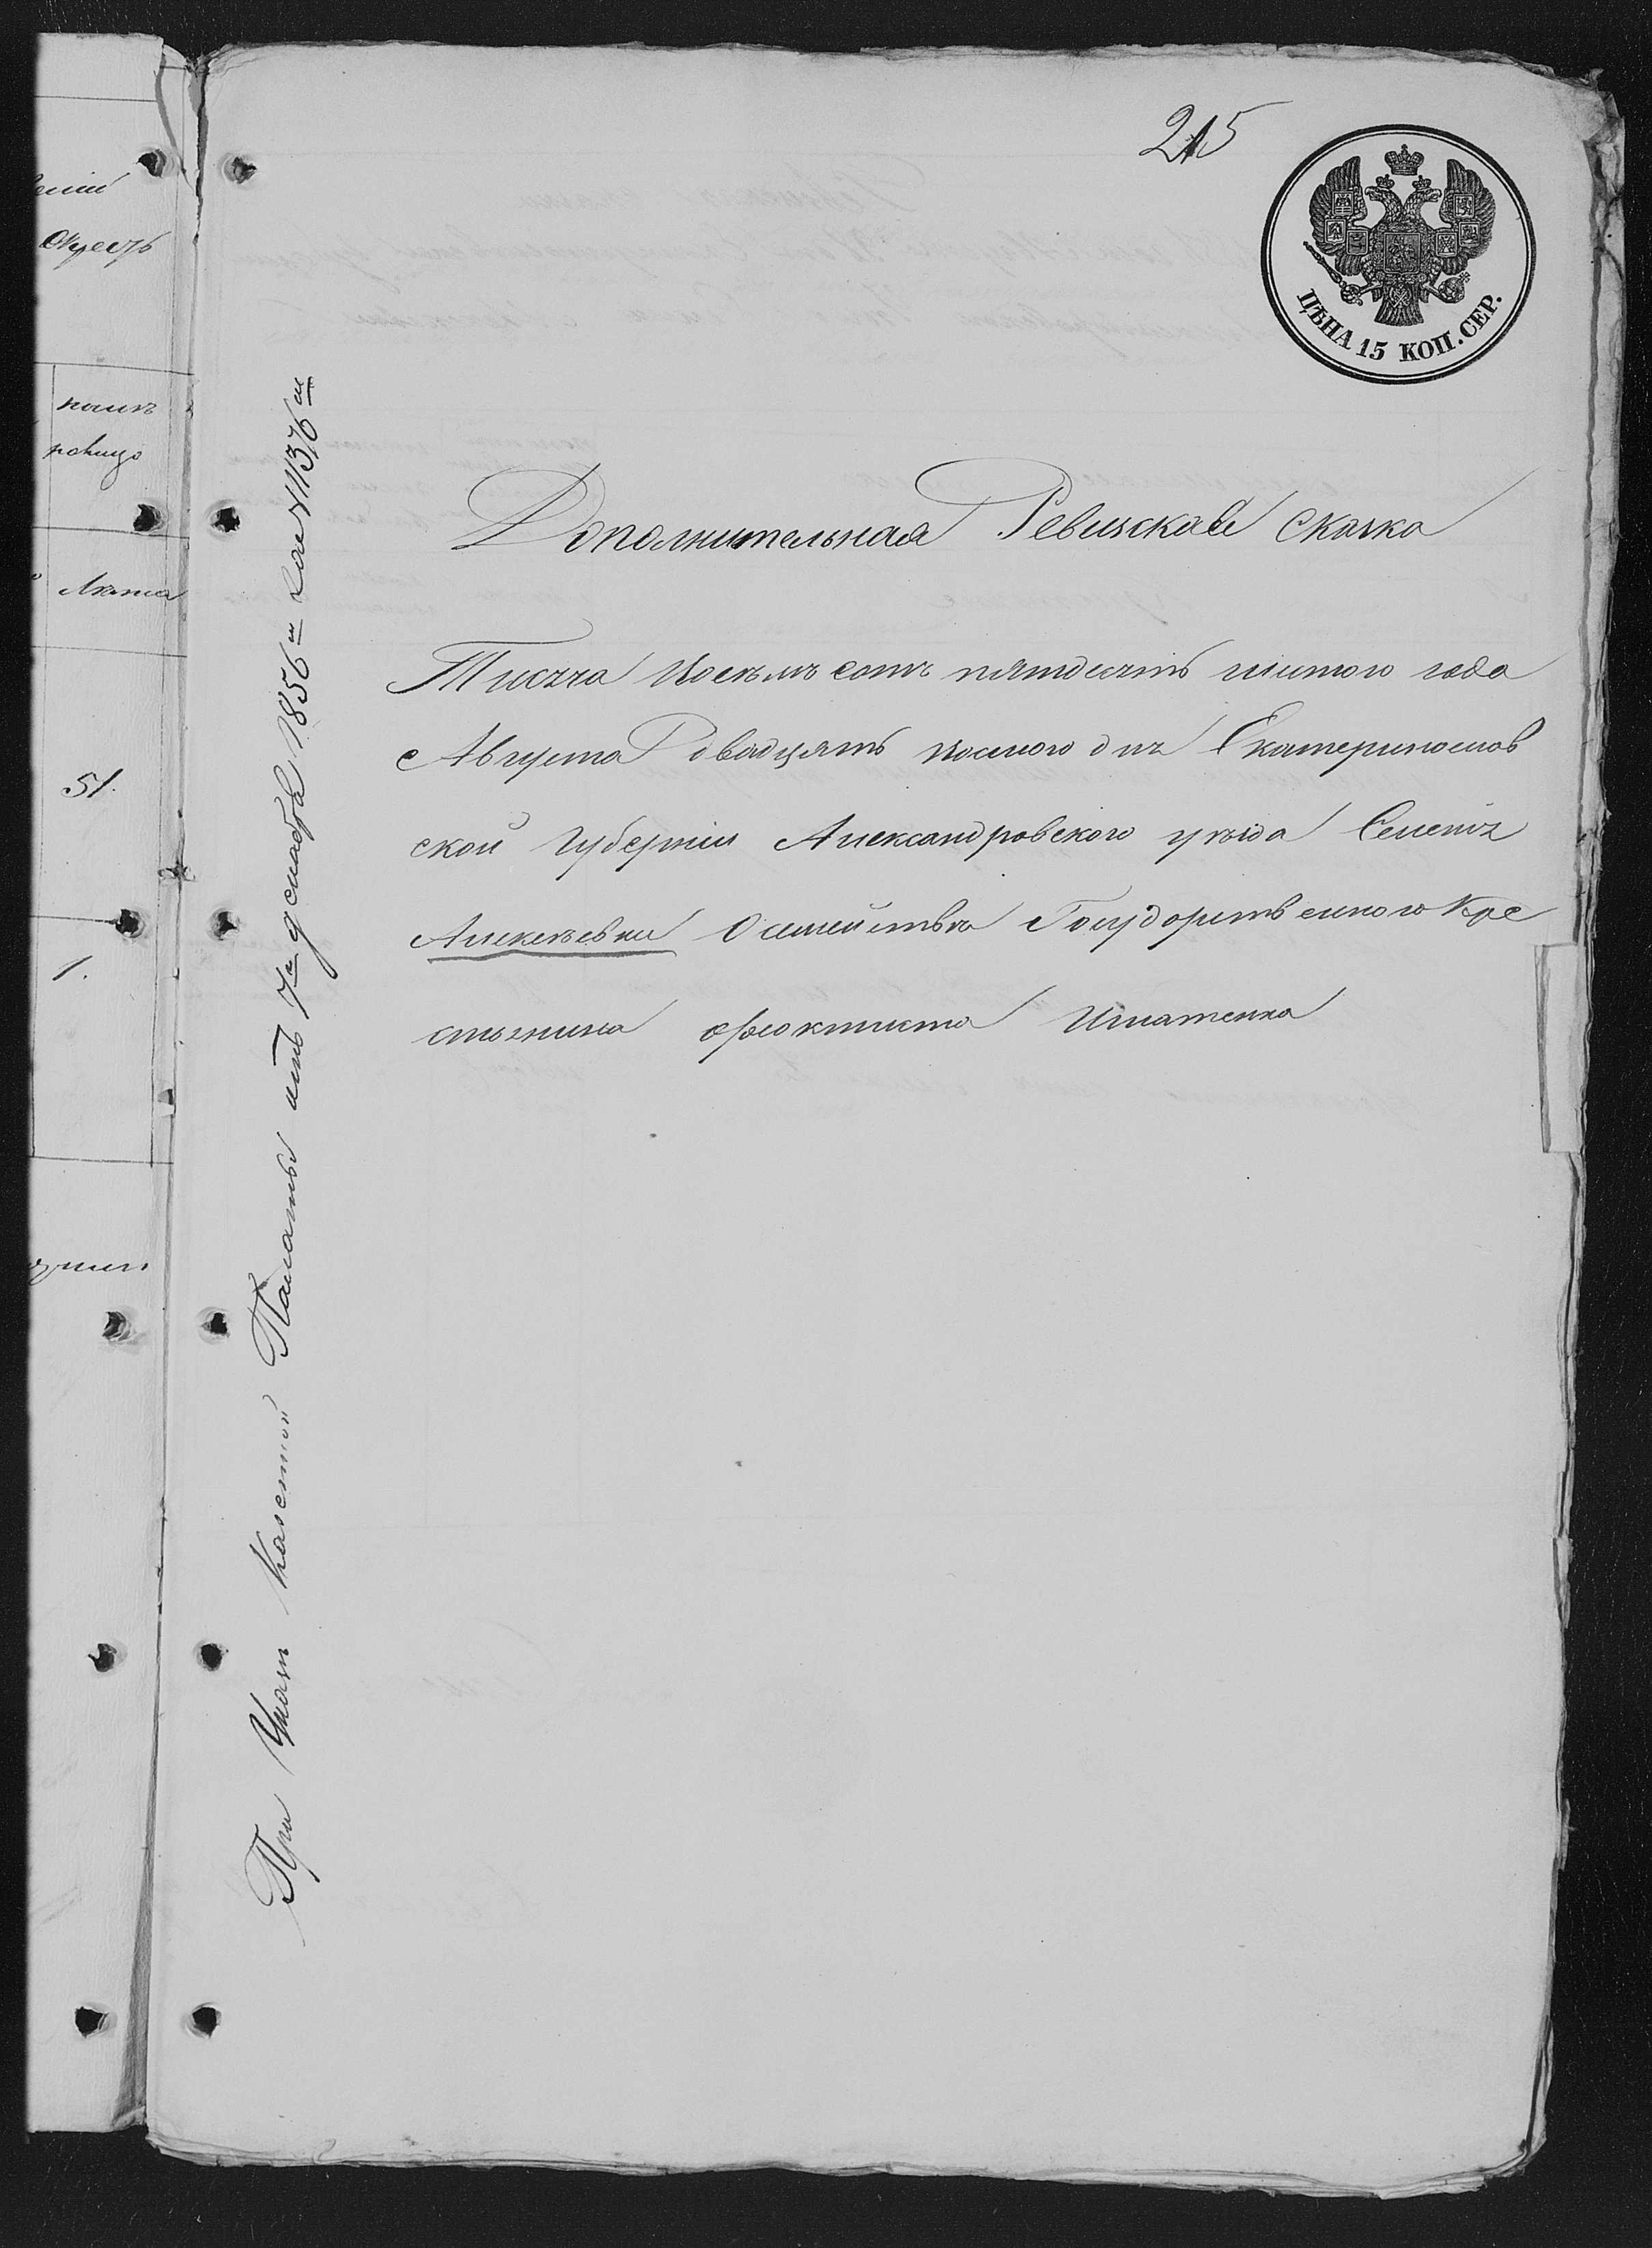 215
ЦѢНА 15 КОП. СЕР.
Дополнительная Ревизская Сказка
Тисяча восемъ сотъ пятдесятъ шистого года
Августа двадцять восмого дня Екатеринослов
ской Губерніи Александровского уѣзда Селенія
Алексѣевки О семействѣ Государственного Кре
стьянина Феоктиста Игнатенка
При Указѣ Казенной Палаты отъ 7го декабря 1856 г. за № 11376 м
Окрестъ
51.
1.